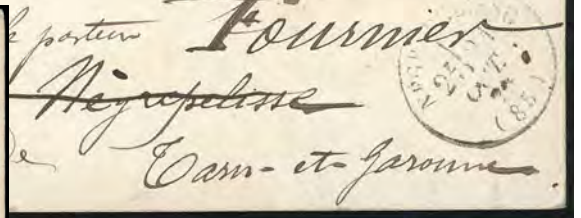 le porteur Fournier
Nègrepelisse
de
Tarn-et-Garonne
25
OCT.
(85)